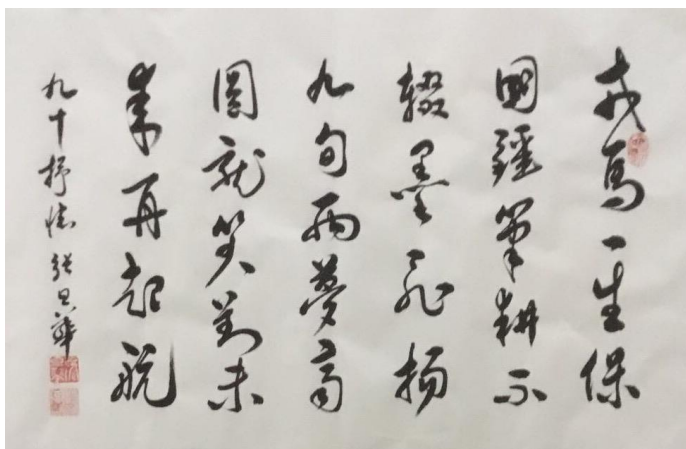 戎馬一生保
國疆筆耕不
輟墨飛揚
九旬兩夢高
圓就笑對未
來再起航
九十抒懷 張思華